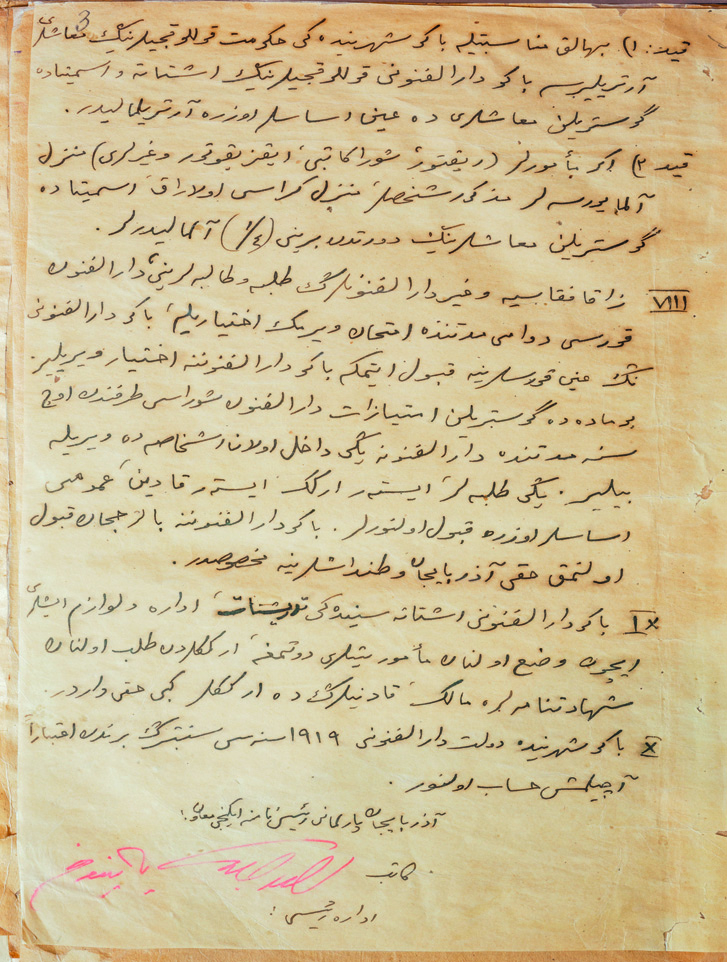 3
قید: ۱) بهالق مناسبتیله باکو شهرینده کی حکومت قوللوقچیلرینڭ معاشلری
آرتریلیرسه باکو دارالفنونی قوللوقچیلرینڭ اشتاتنه و اسمیتاده
گوستریلن معاشلری ده عین اساسلر اوزره آرتریلمالیدر.
قید ۲) اکر مأمورلر (ریقتور، شورا کاتبی، ایقزیقوتور و غیرلری) منزل
آلمایورسه لر مذکور شخصلر منزل کراسی اولاراق اسمیتاده
گوستریلن معاشلرینڭ دورتدن برینی (۱/٤) آلمالیدرلر.
VIII زاقافقاسیه و غیر دارالفنونلرڭ طلبه و طالبه لرینی دارالفنون
قورسی دوامی مدتنده امتحان ویرمك اختیاریله باکو دارالفنونی
نڭ عین قورسلرینه قبول ایتمکه باکو دارالفنوننه اختیار ویریلیر.
بو ماده ده گوستریلن امتیازات دارالفنون شوراسی طرفندن اوچ
سنه مدتنده دارالفنونه یڭی داخل اولان اشخاصه ده ویریله
بیلیر. یڭی طلبه لر ایستر ارکك ایستر قادین، عمومی
اساسلر اوزره قبول اولنورلر. باکو دارالفنوننه بالرجحان قبول
اولنمق حقی آذربایجان وطنداشلرینه مخصوصدر.
IX باکو دارالفنونی اشتاتنه سینده کی اداره و لوازم ایشلری
ایچون وضع اولنان مأموریتلری دوتمغه، ارککلردن طلب اولنان
شهادتنامه لره مالك قادینلرڭ ده ارککلر کبی حقی واردر.
X باکو شهرینده دولت دارالفنونی ۱۹۱۹ سنه سی سنتبرڭ برندن اعتباراً
آچیلمش حساب اولنور.
آذربایجان پارلمانی رئیسی نامنه ایکنجی معاون:
کاتب
اداره رئیسی: